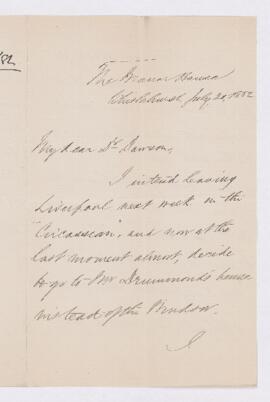 The Manor House
Chislehurst July 20, 1882
My dear Dr. Dawson,
I intend leaving
Liverpool next week in the
"Circassian", and now at the
last moment almost, decide
to go to Mr Drummond's house
instead of the Windsor.
I